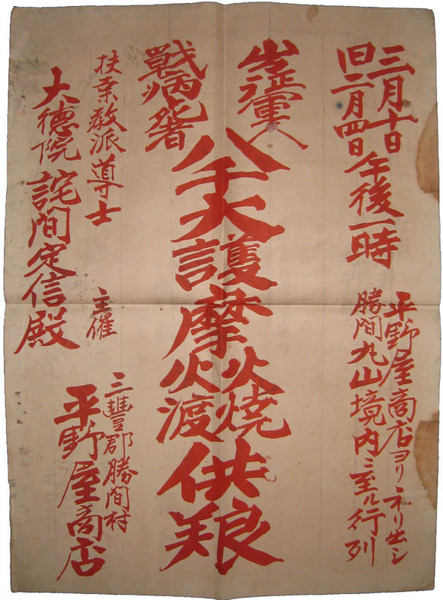 三月十日
旧二月四日午後一時
平野屋商店ヨリネリ出シ
勝間丸山境内ニ至ル行列
出征軍人
戰病死者
八千大護摩火焼火渡供粮
扶桒教派導士
大徳院 詫間定信殿
主催
三豐郡勝間村
平野屋商店